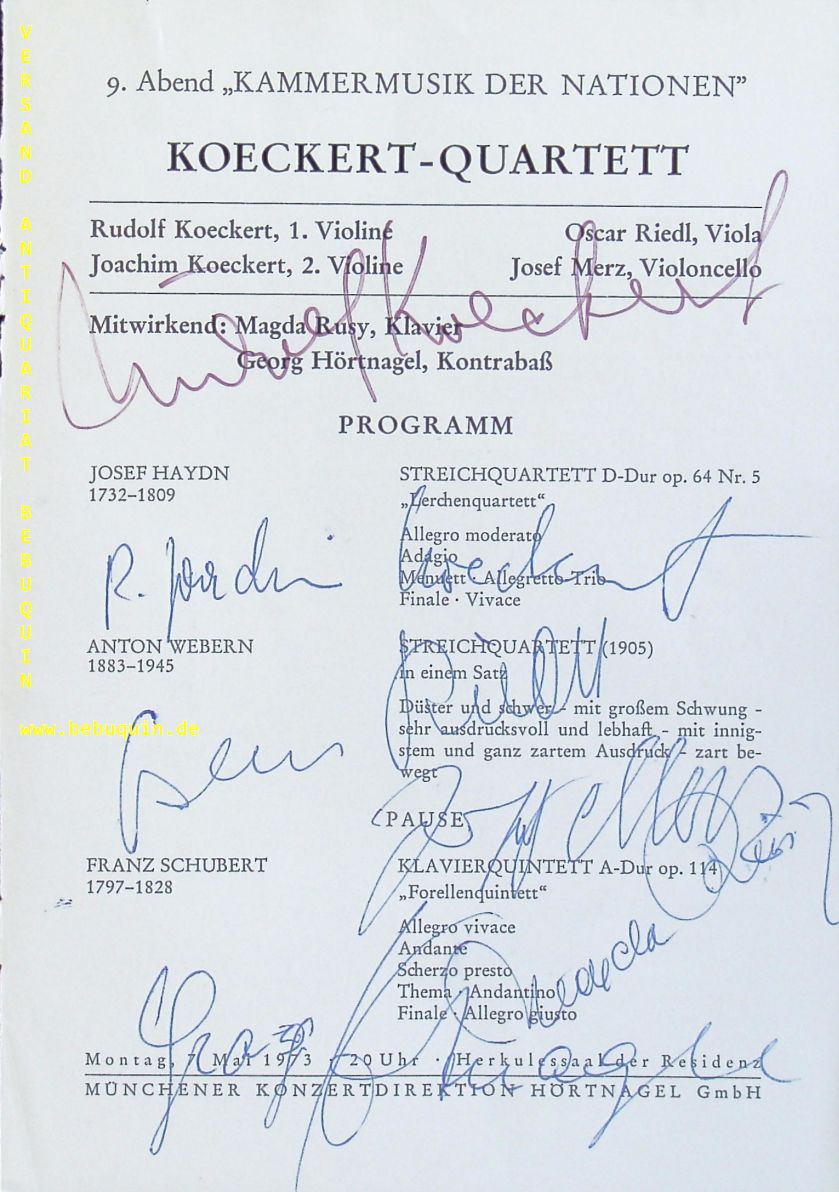 VERSAND ANTIQUARIAT BEBUQUIN
www.bebuquin.de
9. Abend „KAMMERMUSIK DER NATIONEN”
KOECKERT-QUARTETT
Rudolf Koeckert, 1. Violine Oscar Riedl, Viola
Joachim Koeckert, 2. Violine Josef Merz, Violoncello
Rudolf Koeckert
Mitwirkend: Magda Rusy, Klavier
Georg Hörtnagel, Kontrabaß
PROGRAMM
JOSEF HAYDN STREICHQUARTETT D-Dur op. 64 Nr. 5
1732–1809 „Lerchenquartett“
Allegro moderato
Adagio
Menuett · Allegretto-Trio
Finale · Vivace
R. Joachim Koeckert
ANTON WEBERN STREICHQUARTETT (1905)
1883–1945 in einem Satz
Düster und schwer - mit großem Schwung -
sehr ausdrucksvoll und lebhaft - mit innig-
stem und ganz zartem Ausdruck - zart be-
wegt
Riedl
PAUSE
FRANZ SCHUBERT KLAVIERQUINTETT A-Dur op. 114
1797–1828 „Forellenquintett“
Allegro vivace
Andante
Scherzo presto
Thema · Andantino
Finale · Allegro giusto
Magda 
Georg Hörtnagel
Montag, 7. Mai 1973 · 20 Uhr · Herkulessaal der Residenz
MÜNCHENER KONZERTDIREKTION HÖRTNAGEL GmbH